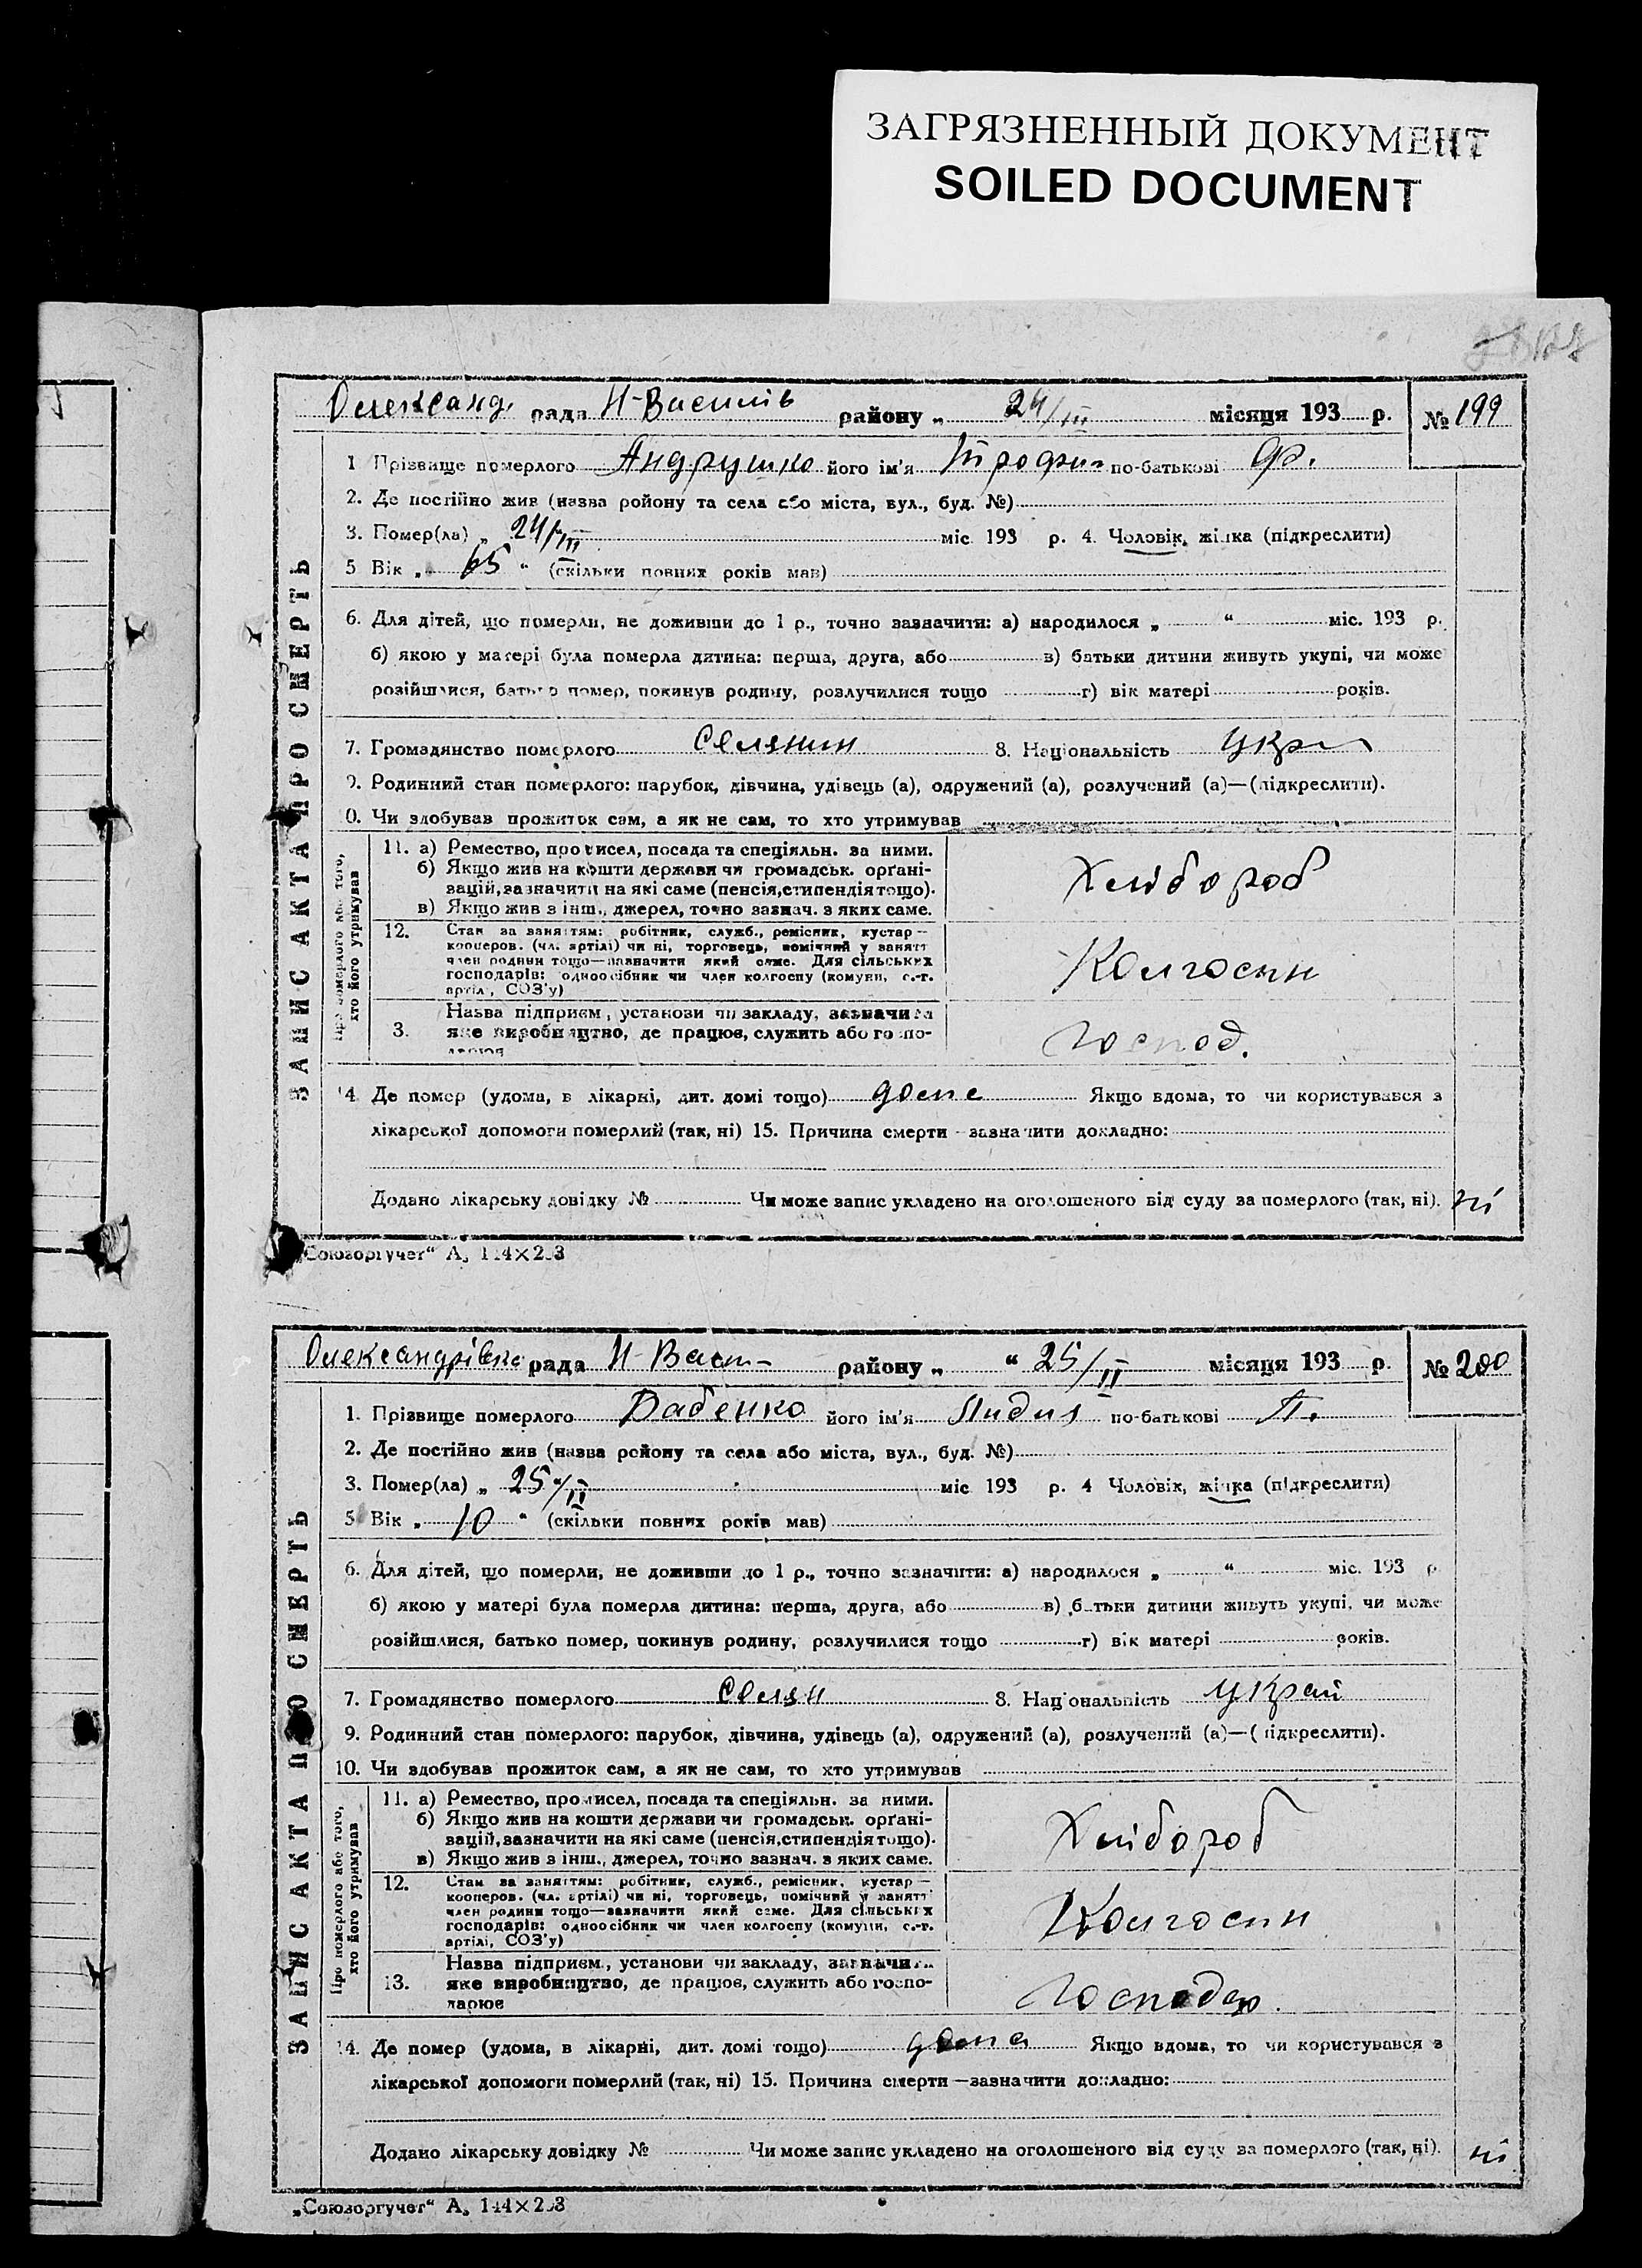 ЗАГРЯЗНЕННЫЙ ДОКУМЕНТ
SOILED DOCUMENT
Олександ. рада Н-Василів району „ 24/III місяця 193 р. № 199
1 Прізвище померлого Андрушко його ім'я Трофим по-батькові Ф.
2. Де постійно жив (назва ройону та села або міста, вул., буд. №)
3. Помер(ла) „ 24/III міс 193 р. 4. Чоловік, жінка (підкреслити)
5 Вік „ 65 “ (скільки повних років мав)
6. Для дітей, що померли, не доживши до 1 р., точно зазначити: а) народилося „ “ міс. 193 р.
б) якою у матері була померла дитина: перша, друга, або в) батьки дитини живуть укупі, чи може
розійшлися, батько помер, покинув родину, розлучилися тощо г) вік матері років.
7. Громадянство померлого Селянин 8. Національність Укра
9. Родинний стан померлого: парубок, дівчина, удівець (а), одружений (а), розлучений (а)—(підкреслити).
0. Чи здобував прожиток сам, а як не сам, то хто утримував
ЗАПИС АКТА ПРО СМЕРТЬ
Про померлого або того,
хто його утримував
11. а) Ремество, промисел, посада та спеціяльн. за ними.
б) Якщо жив на кошти держави чи громадськ. орґані-
зацій, зазначити на які саме (пенсія, стипендія тощо).
в) Якщо жив з інш., джерел, точно зазнач. з яких саме.
Хлібороб
12. Стан за заняттям: робітник, служб., ремісник, кустар—
кооперов. (чл. артілі) чи ні, торговець, помічний у занятт
член родини тощо—зазначити який саме. Для сільських
господарів: одноосібник чи член колгоспу (комуни, с.-г.
артілі, СОЗ'у)
Колгоспн
3. Назва підприєм., установи чи закладу, зазначити
яке виробництво, де працює, служить або госпо-
дарює
Господ.
14 Де помер (удома, в лікарні, дит. домі тощо) дома Якщо вдома, то чи користувався з
лікарської допомоги померлий (так, ні) 15. Причина смерти—зазначити докладно:
Додано лікарську довідку № Чи може запис укладено на оголошеного від суду за померлого (так, ні). ні
„Союзоргучет“ А₅ 144×203
Олександрівка рада Н-Васил- району „ “ 25/III місяця 193 р. № 200
1. Прізвище померлого Бабенко його ім'я Лидия по-батькові П.
2. Де постійно жив (назва ройону та села або міста, вул., буд. №)
3. Помер(ла) „ 25“/III міс 193 р. 4 Чоловік, жінка (підкреслити)
5 Вік „ 10 “ (скільки повних років мав)
6. Для дітей, що померли, не доживши до 1 р., точно зазначити: а) народилося „ “ міс. 193 р
б) якою у матері була померла дитина: перша, друга, або в) батьки дитини живуть укупі, чи може
розійшлися, батько помер, покинув родину, розлучилися тощо г) вік матері років.
7. Громадянство померлого Селян 8. Національність Украй
9. Родинний стан померлого: парубок, дівчина, удівець (а), одружений (а), розлучений (а)—(підкреслити).
10. Чи здобував прожиток сам, а як не сам, то хто утримував
ЗАПИС АКТА ПРО СМЕРТЬ
Про померлого або того,
хто його утримував
11. а) Ремество, промисел, посада та спеціяльн. за ними.
б) Якщо жив на кошти держави чи громадськ. орґані-
зацій, зазначити на які саме (пенсія, стипендія тощо).
в) Якщо жив з інш., джерел, точно зазнач. з яких саме.
Хлібороб
12. Стан за заняттям: робітник, служб., ремісник, кустар—
кооперов. (чл. артілі) чи ні, торговець, помічний у занятт
член родини тощо—зазначити який саме. Для сільських
господарів: одноосібник чи член колгоспу (комуни, с.-г.
артілі, СОЗ'у)
Колгоспн
13. Назва підприєм., установи чи закладу, зазначити
яке виробництво, де працює, служить або госпо-
дарює
Господар.
14. Де помер (удома, в лікарні, дит. домі тощо) дома Якщо вдома, то чи користувався з
лікарської допомоги померлий (так, ні) 15. Причина смерти—зазначити докладно:
Додано лікарську довідку № Чи може запис укладено на оголошеного від суду за померлого (так, ні). ні
„Союзоргучет“ А₅ 144×203